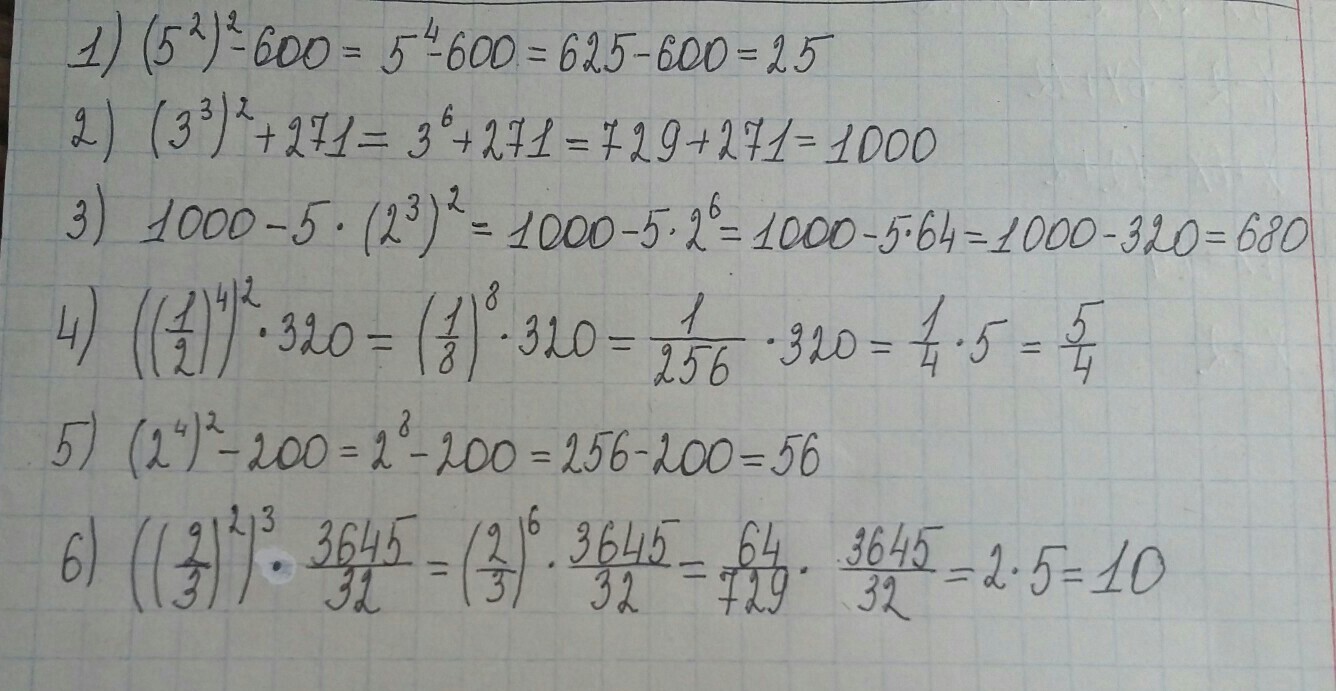 1) (5²)² - 600 = 5⁴ - 600 = 625 - 600 = 25
2) (3³)² + 271 = 3⁶ + 271 = 729 + 271 = 1000
3) 1000 - 5 · (2³)² = 1000 - 5 · 2⁶ = 1000 - 5 · 64 = 1000 - 320 = 680
4) ((1/2)⁴)² · 320 = (1/8)⁸ · 320 = 1/256 · 320 = 1/4 · 5 = 5/4
5) (2⁴)² - 200 = 2⁸ - 200 = 256 - 200 = 56
6) ((2/3)²)³ · 3645/32 = (2/3)⁶ · 3645/32 = 64/729 · 3645/32 = 2 · 5 = 10